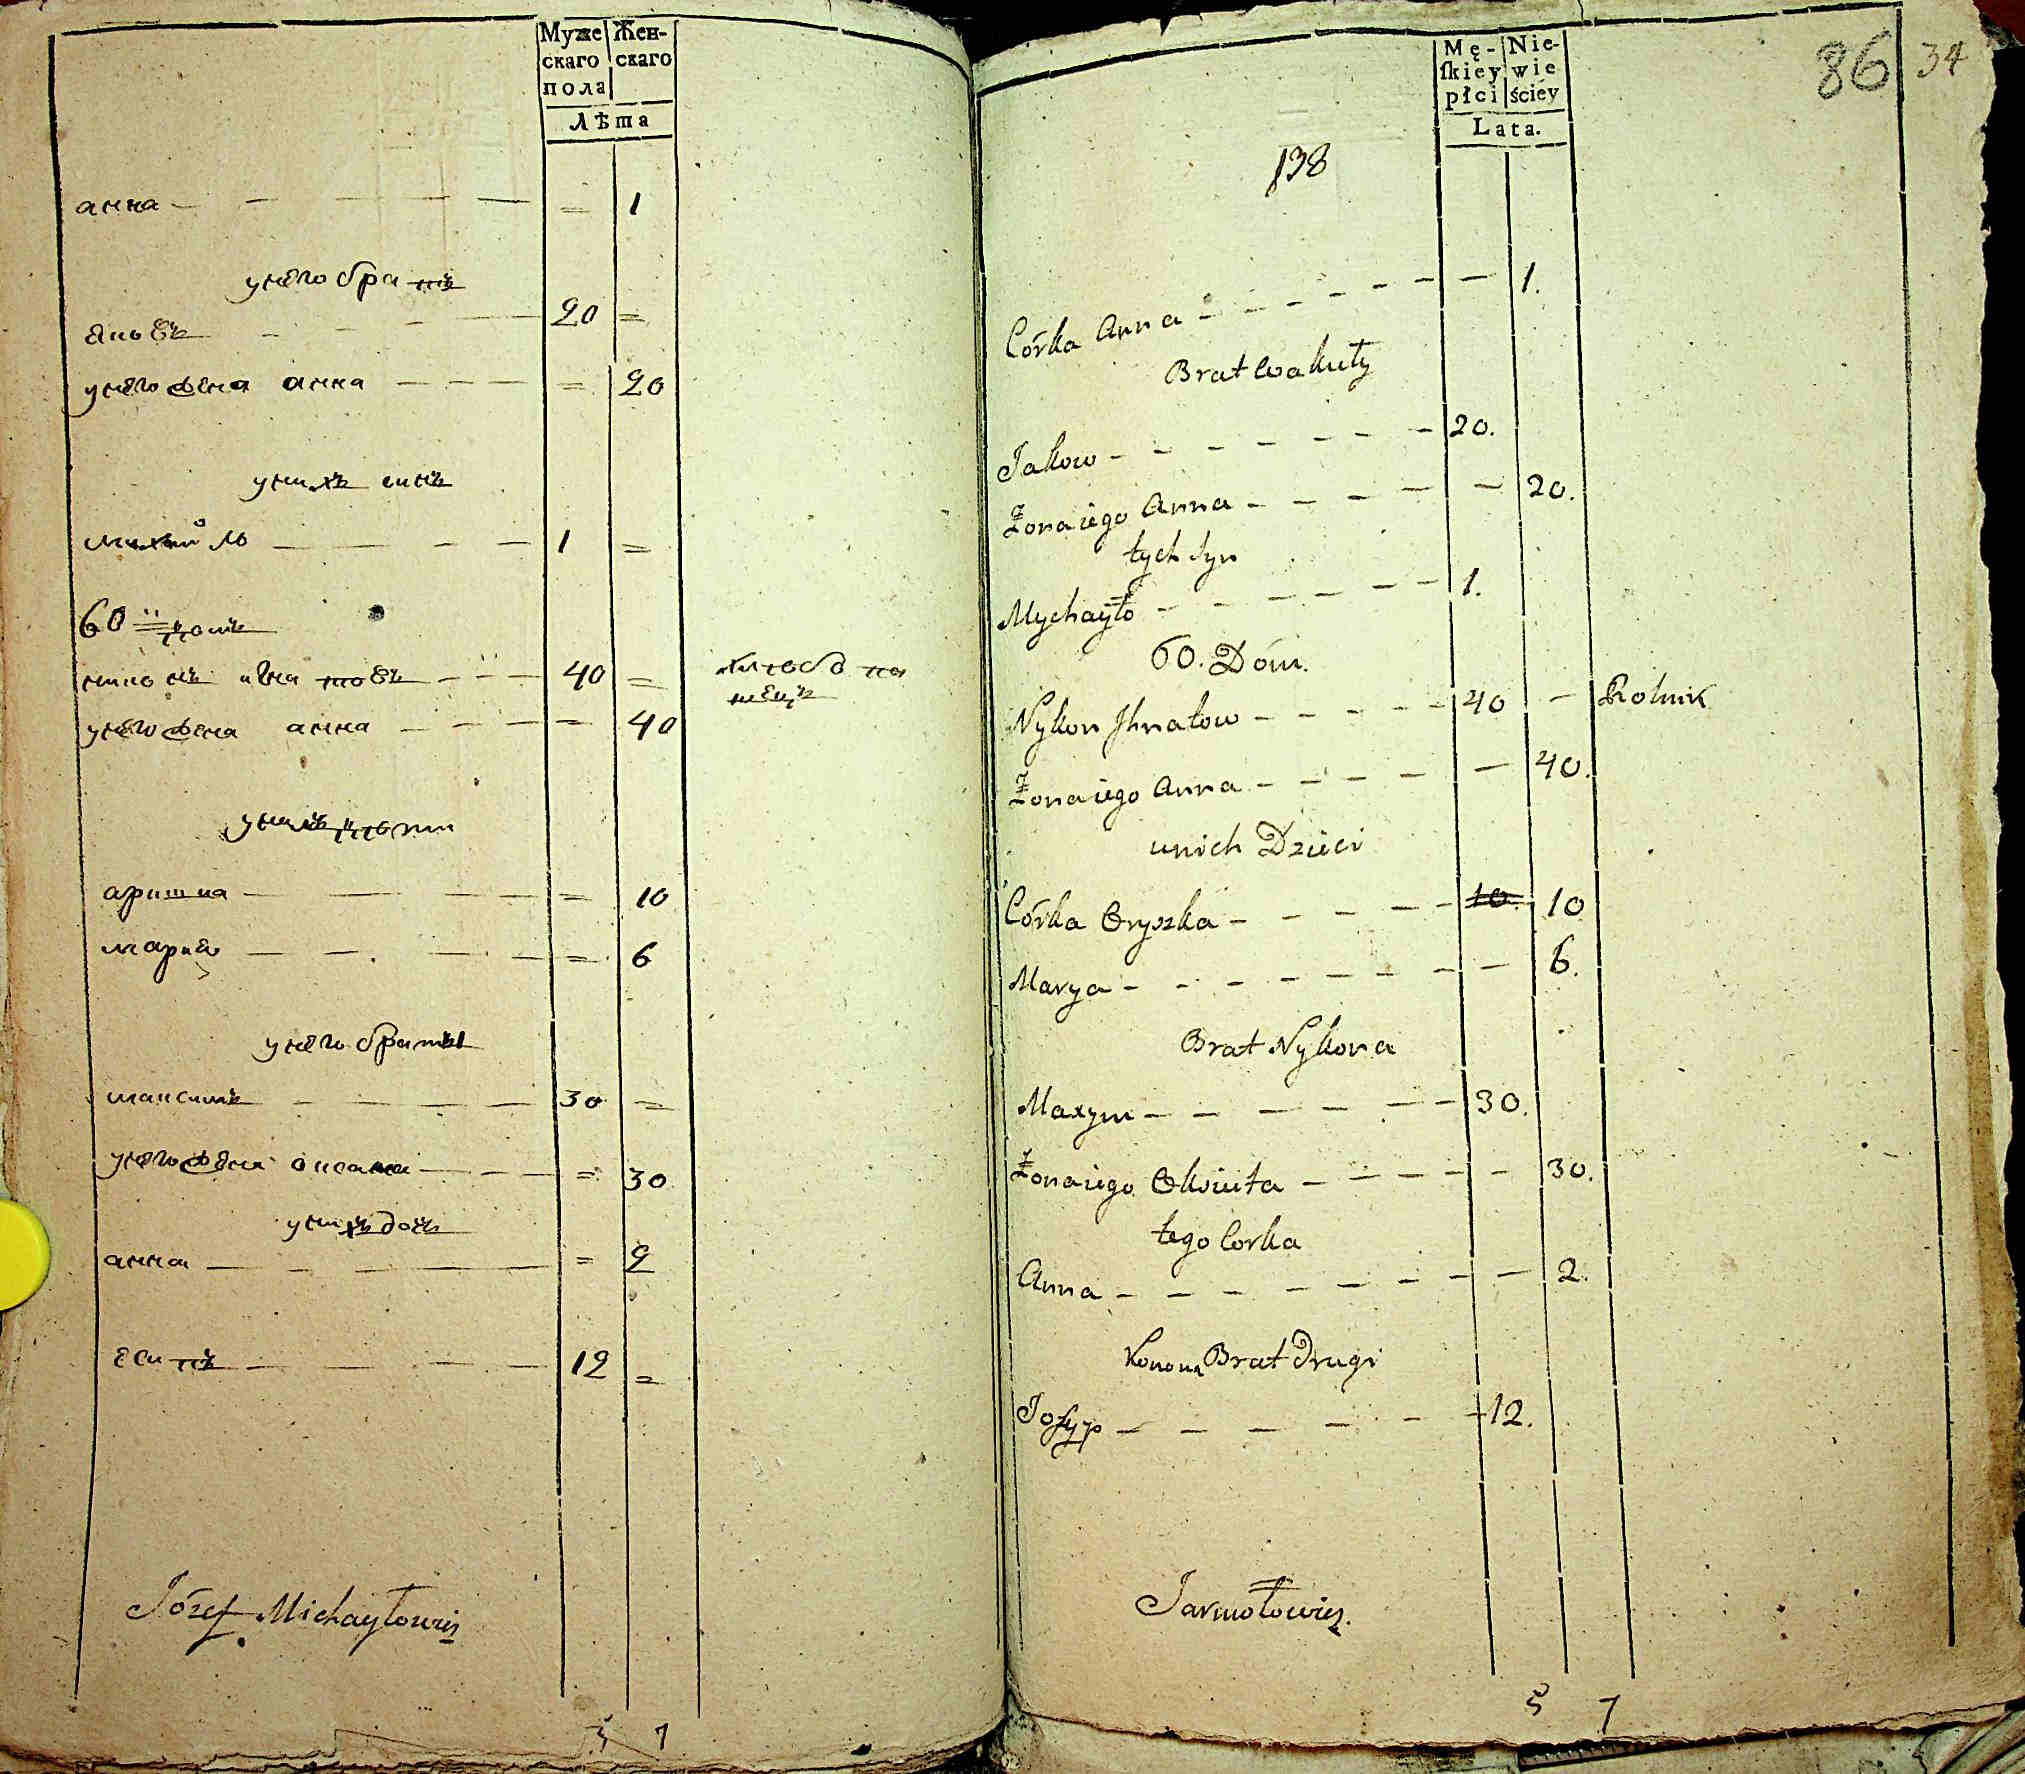 Муже Жен-
скаго скаго
пола
Лѣта
анна — — — — — = 1
унего братъ
яковъ — — — — 20 =
унего жена анна — — — = 20
унихъ синъ
михайло — — — — 1 =
60 й домъ
никонъ игнатовъ — — — 40 = хлѣбопа
шецъ
унего жена анна — — — = 40
унихъ дѣти
аришка — — — — = 10
мария — — — — — = 6
унего братъя
максимъ — — — — 30 =
унего жена оксана — — — = 30
унихъ дочь
анна — — — — = 2
есипъ — — — — 12 =
Józef Michayłowicz
5 7
86 34
Mę- Nie-
skiey wie
płci ściey
Lata.
138
Córka Anna — — — — — — — 1.
Brat Wakuły
Jakow — — — — — — — 20.
Żona iego Anna — — — — — — 20.
tych syn
Mychayło — — — — — — 1.
60. Dóm.
Nykon Jhnatow — — — — — 40 — Rolnik
Żona iego Anna — — — — — — 40.
unich Dzieci
Córka Oryszka — — — — — 10. 10
Marya — — — — — — — 6.
Brat Nykona
Maxym — — — — — — 30.
Żona iego Okseuta — — — — — 30.
tego Corka
Anna — — — — — — — — 2.
Konona Brat Drugi
Josyp — — — — — — 12.
Jarmołowicz.
5 7